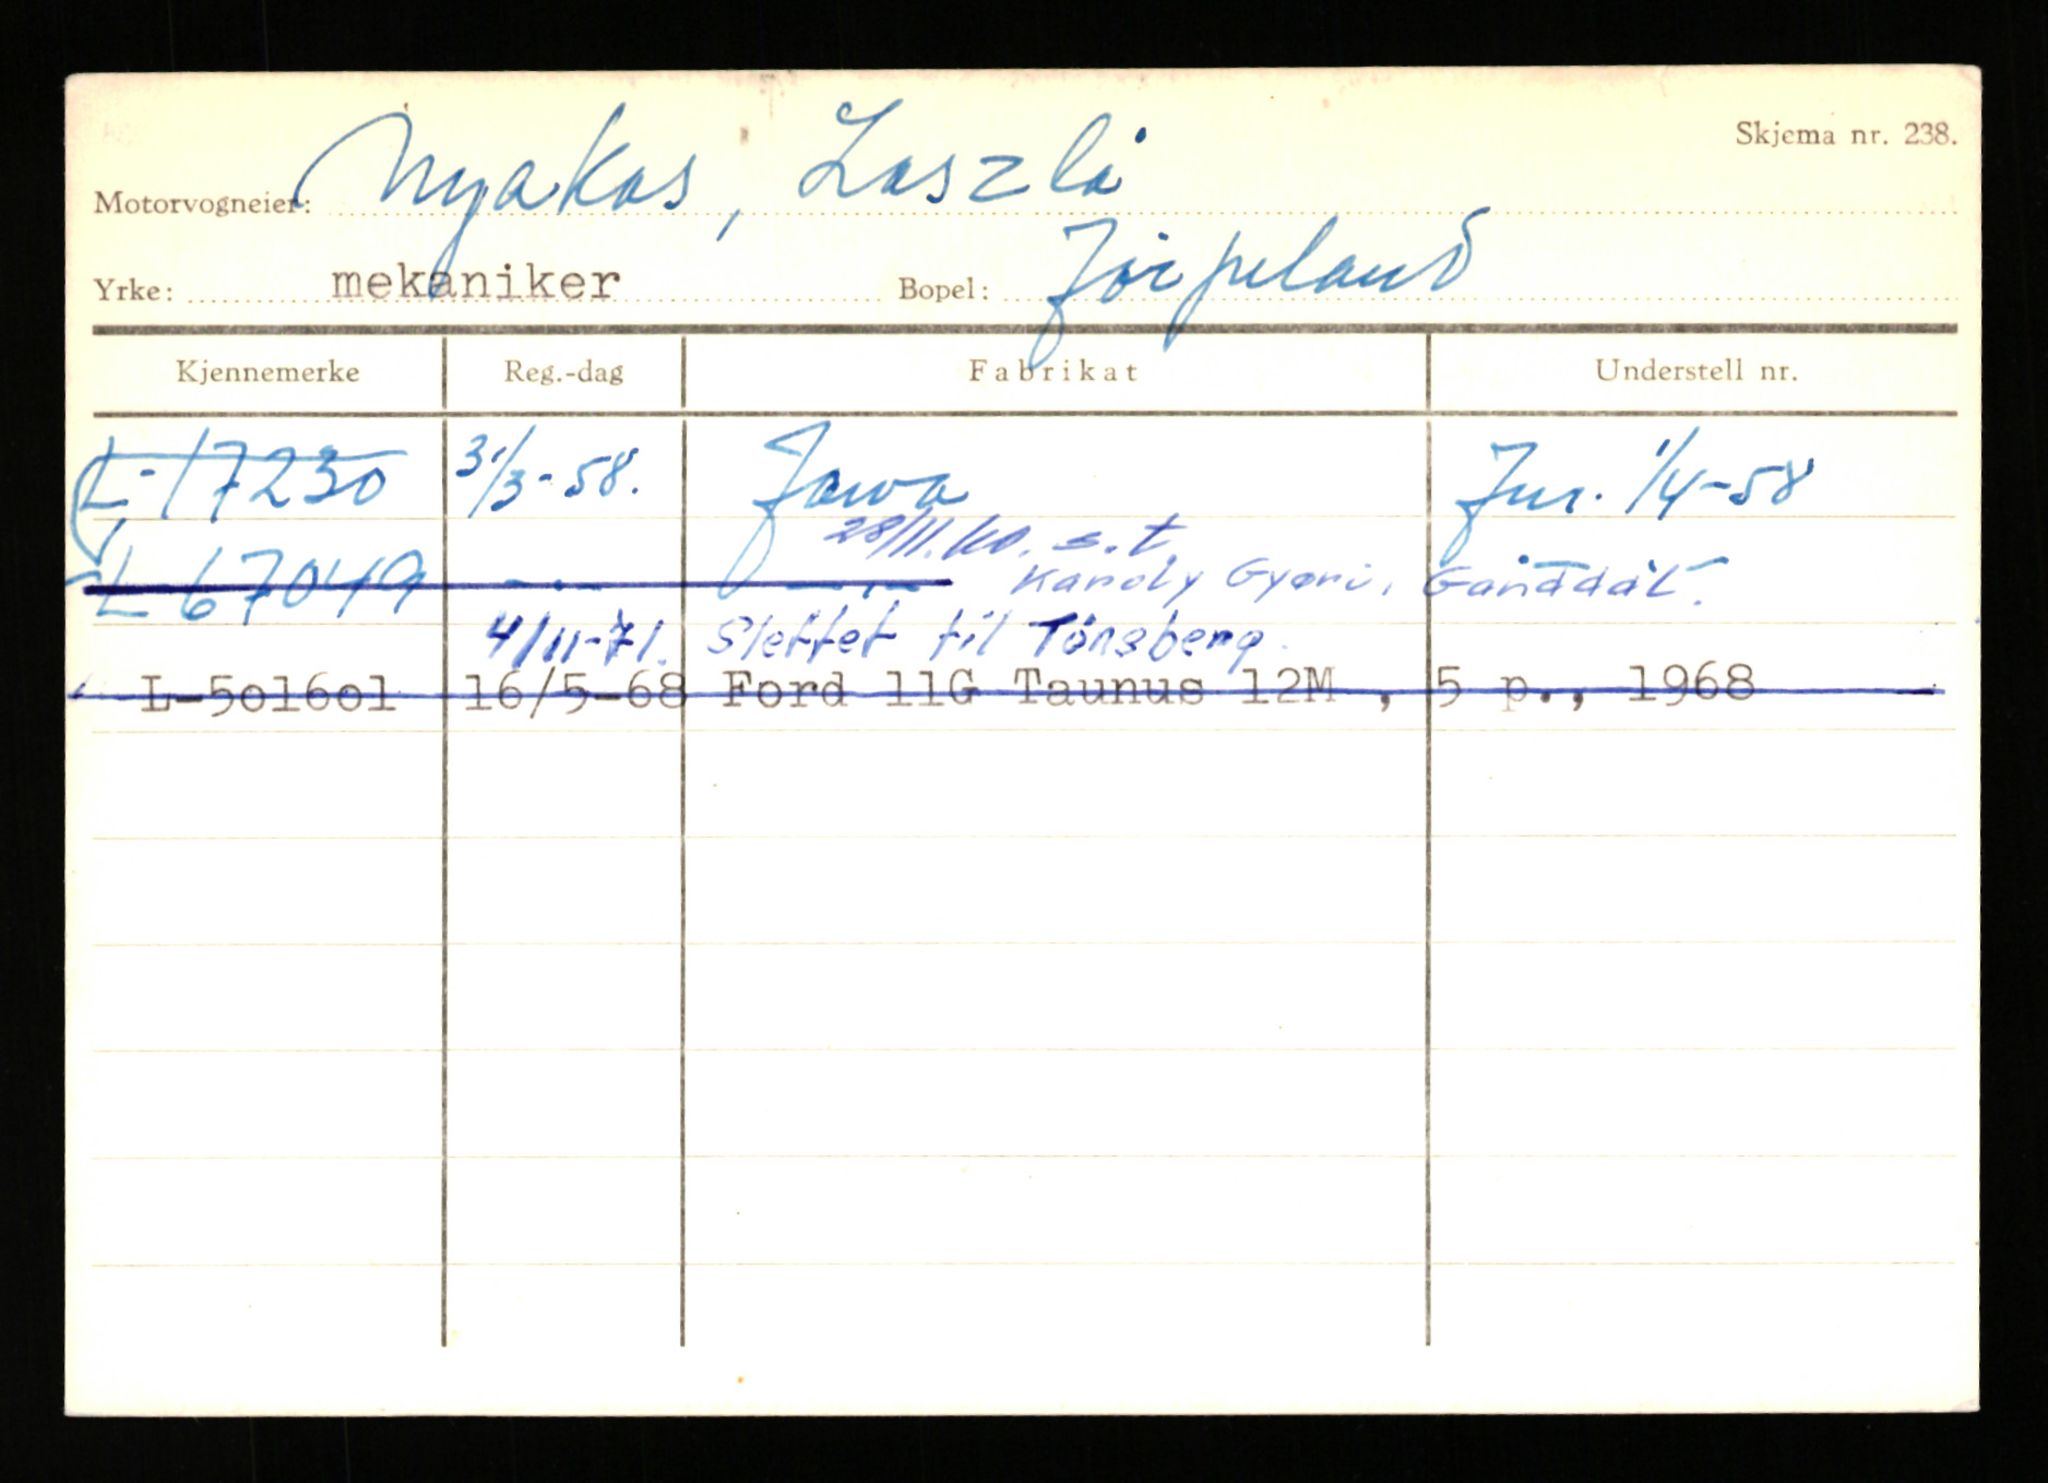 Skjema nr. 238.
Motorvogneier: Nyakas, Laszlo
Yrke: mekaniker Bopel: Jørpeland
Kjennemerke Reg.-dag Fabrikat Understell nr.
L-17230 31/3-58. Jawa Inr. 1/4-58
28/11.60. s.t.
L-67049 -"- -"- Karoly Gyøri, Ganddal.
4/11-71. Slettet til Tönsberg.
L-501601 16/5-68 Ford 11G Taunus 12M , 5 p., 1968